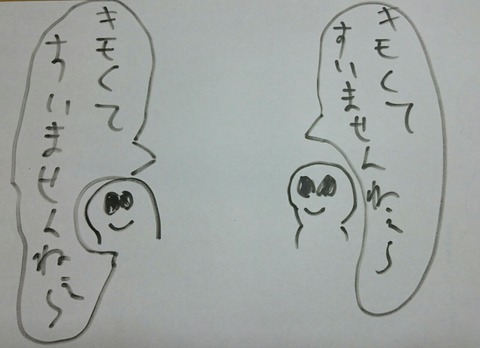 キモくて
すいませんねぇ〜
キモくて
すいませんねぇ〜